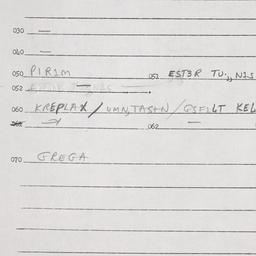 030 —
040 —
050 PIR1M 051 EST3R TU:,, N1S
052
060 KREPLAX / UMN,TASHN / GSFILT KEL
062
070 GREGA